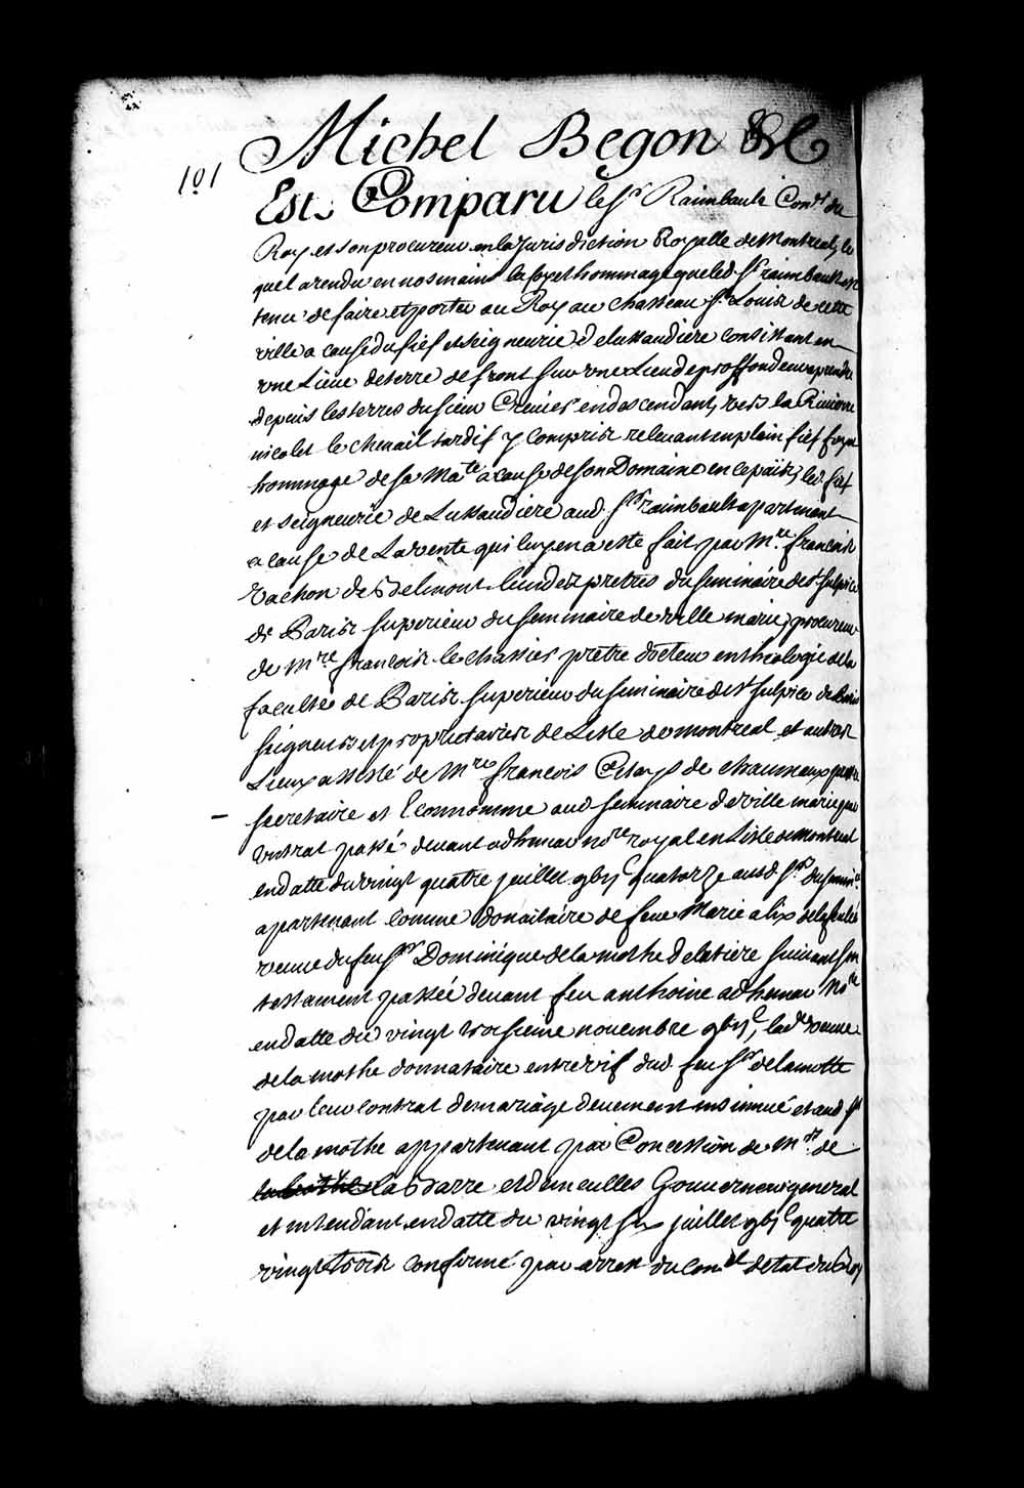 101
Michel Begon &c
Est Comparu le Sr Raimbault Conr du
Roy et son procureur en la Jurisdiction Royalle de Montreal, le
quel a rendu en nos mains la foy et hommage que led. Sr raimbault est
tenu de faire et porter au Roy au Chasteau St Louis de cette
ville a cause du fief et seigneurie de lussaudiere consistant en
une Lieue de terre de front sur une Lieue de proffondeur a prendre
depuis les terres du sieur Crevier en descendant, vers la Riviere
nicolet le chenail tardif y compris relevant en plain fief foy et
hommage de sa Mate a cause de son Domaine en ce païs, led. fief
et seigneurie de Lussaudiere aud. Sr raimbault apartenant
a cause de La vente qui luy en a este fait par Mre francois
Vachon de Belmont l'un des pretres du seminaire de St Sulpice
de Paris superieur du seminaire de ville marie, procureur
de Mre francois le chassier pretre docteur en theologie de la
faculté de Paris superieur du seminaire de St sulpice de Paris
seigneurs et proprietaires de L'isle de montreal et autres
Lieux assisté de Mre francois Citoys de chaumaux pretre
secretaire et Econnomme aud seminaire de ville marie par
Contrat passé devant adhemar nore royal en L'isle de montreal
en datte du vingt quatre juillet gbijc quatorze ausd. Srs du semin.re
apartenant comme donataire de feue Marie alix de la feuleé
veuve du feu Sr Dominique de la mothe de lutiere suivant son
testament passée devant feu anthoine adhemar Nore
en datte du vingt troisieme novembre gbijc, lad. veuve
de la mothe donnataire entrevif dud. feu Sr de lamotte
par leur contrat de mariage deuement insinué et aud. Sr
de la mothe appartenant par Concession de Mrs de
la barre et demeulles Gouverneur general
et intendant en datte du vingt six juillet gbjc quatre
vingt trois confirmé par arrest du Conel detat du Roy